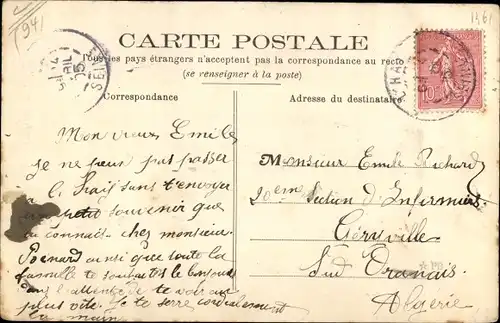 (94)
1461
CARTE POSTALE
Tous les pays étrangers n'acceptent pas la correspondance au recto
(se renseigner à la poste)
Correspondance
Adresse du destinataire
Mon vieux Emile
je ne peux pas passer
à l. sans t'envoyer
souvenir que
tu connais. chez monsieur
ainsi que toute la
famille te souhaites le bonjour
dans l'attente de te voir au
plus vite. Je te serre cordialement
la main
Monsieur Emile Richard
20eme Section d'Infirmiers
Géryville
Sud Oranais
Algerie